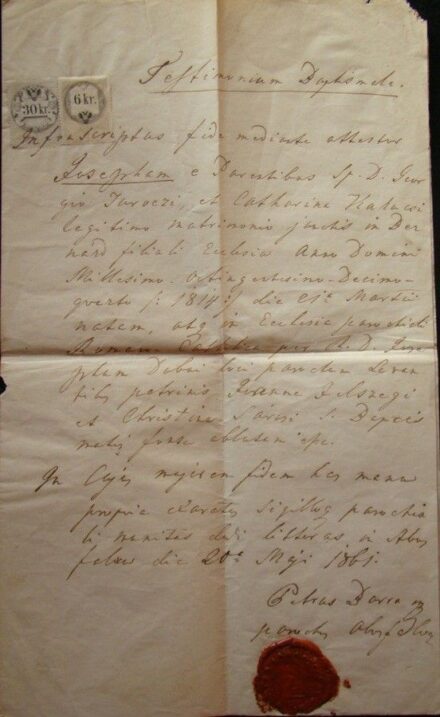 Testimonium Baptismale.
30 kr.
6 kr.
Infrascriptus fide mediante attestor
Josepham e Parentibus Sp. D. Geor
gio Turoczi, et Catharina
legitimo matrimonio junctis in Ber
nard filiali Ecclesia Anno Domini
Millesimo Octingentesimo Decimo
quarto /: 1814 :/ die 21a Martii
natam, atq in Ecclesia parochiali
Romano Catholica per A. D. Jose
phum Dobai loci parochum Levan
tibus patrinis Joanne Jelszegi
et Christina
fonte ablutam esse.
In Cujus majorem fidem has manu
propria exaratas sigilloq parochia
li munitas dedi litteras in Abuj
falva die 20a Maji 1861.
Petrus Darra mp
parochus